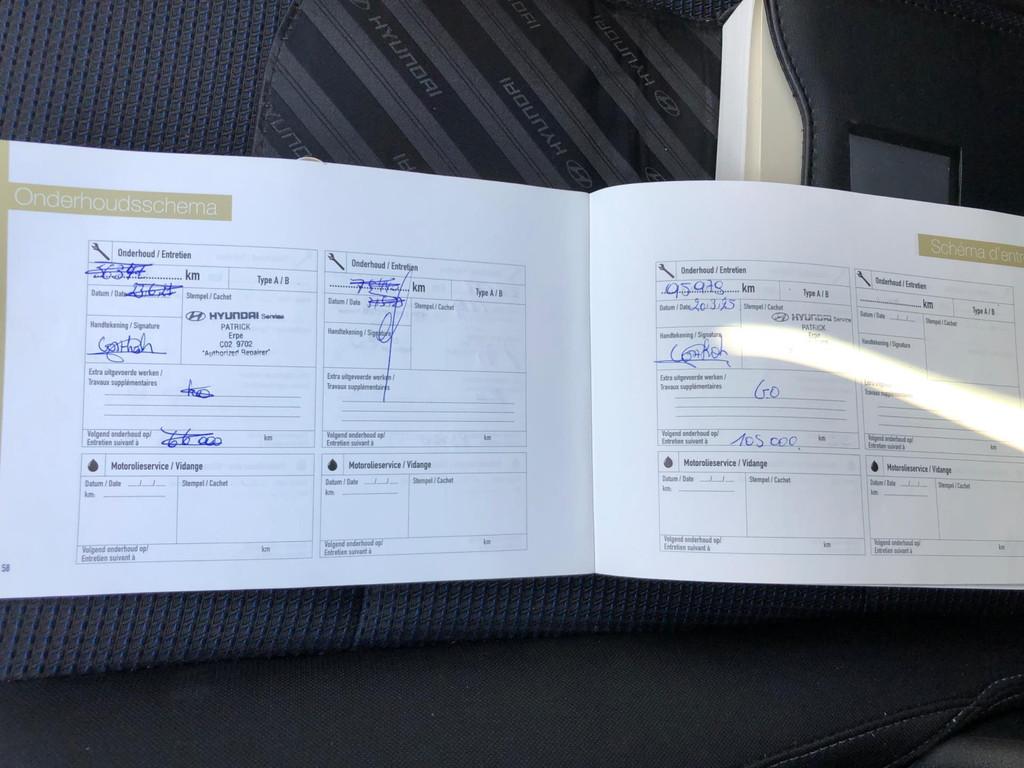 HYUNDAI
HYUNDAI
HYUNDAI
Onderhoudsschema
Onderhoud / Entretien
km
Type A / B
Datum / Date
Stempel / Cachet
HYUNDAI Service
PATRICK
Erpe
C02 9702
"Authorized Repairer"
Handtekening / Signature
Extra uitgevoerde werken /
Travaux supplémentaires
Volgend onderhoud op/
Entretien suivant à
66 000
km
Motorolieservice / Vidange
Datum / Date __/__/__
km:
Stempel / Cachet
Volgend onderhoud op/
Entretien suivant à
km
58
Onderhoud / Entretien
km
Type A / B
Datum / Date
Stempel / Cachet
Handtekening / Signature
Extra uitgevoerde werken /
Travaux supplémentaires
Volgend onderhoud op/
Entretien suivant à
km
Motorolieservice / Vidange
Datum / Date __/__/__
km:
Stempel / Cachet
Volgend onderhoud op/
Entretien suivant à
km
Schéma d'entr
Onderhoud / Entretien
95978 km
Type A / B
Datum / Date 20.3.25
Stempel / Cachet
HYUNDAI Service
PATRICK
Erpe
Handtekening / Signature
Extra uitgevoerde werken /
Travaux supplémentaires
GO
Volgend onderhoud op/
Entretien suivant à
105 000
km
Motorolieservice / Vidange
Datum / Date __/__/__
km:
Stempel / Cachet
Volgend onderhoud op/
Entretien suivant à
km
Onderhoud / Entretien
km
Type A / B
Datum / Date __/__/__
Stempel / Cachet
Handtekening / Signature
Volgend onderhoud op/
Entretien suivant à
Motorolieservice / Vidange
Datum / Date __/__/__
km:
Stempel / Cachet
Volgend onderhoud op/
Entretien suivant à
km